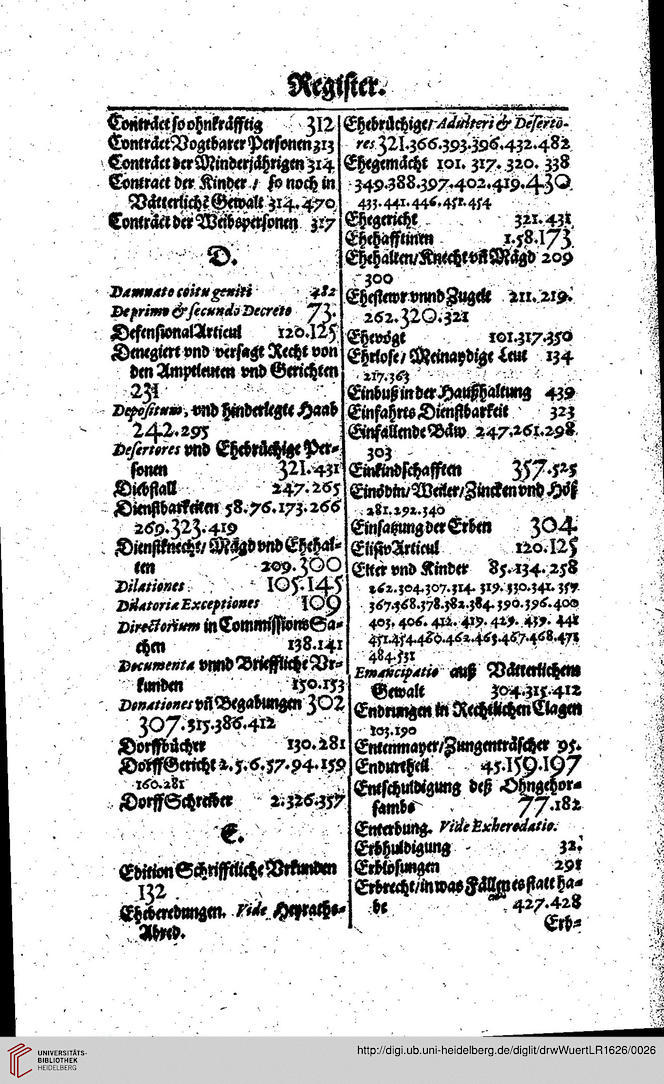 Register.
Contract so ohnkräfftig 312
Contract Vogtbarer Personen 313
Contract der Minderjährigen 314
Contract der Kinder / so noch in
Vätterlichē Gewalt 314.470
Contract der Weibspersonen 317
D.
Damnato coitu geniti 482
De primo & secundo Decreto 73.
Defensional Articul 120.125
Denegiert vnd versagt Recht von
den Amptleuten vnd Gerichten
231
Depositum, vnd hinderlegte Haab
242.295
Desertores vnd Ehebrüchige Per-
sonen 321.431
Diebstall 247.265
Dienstbarkeiten 58.76.173.266
269.323.419
Dienstknecht / Mägd vnd Ehehal-
ten 209.300
Dilationes 105.145
Dilatoriæ Exceptiones 109
Directorium in Commissions Sa-
chen 138.141
Documenta vnnd Brieffliche Vr-
kunden 150.153
Donationes vñ Begabungen 302
307.315.386.412
Dorffbücher 130.281
Dorff Gericht 2.5.6.57.94.159
160.281
Dorff Schreiber 2.326.357
E.
Edition Schrifftliche Vrkunden
132
Eheberedungen. Vide Heyraths-
Abred.
Ehebrüchige / Adulteri & Deserto-
res 321.366.393.396.432.482
Ehegemächt 101. 317. 320. 338
349.388.397.402.419.430
433.441.446.451.454
Ehegericht 321.431
Ehehafftinen 1.58.173
Ehehalten / Knecht vñ Mägd 209
300
Ehestewr vnnd Zugelt 211. 219.
262.320.321
Ehevögt 101.317.350
Ehrlose / Meinaydige Leut 134
217.363
Einbuß in der Haußhaltung 439
Einfahrts Dienstbarkeit 323
Einfallende Bäw 247.261.298
303
Einkindschafften 357.525
Einödin / Weiler / Zincken vnd Höf
281.292.340
Einsatzung der Erben 304
Elisiv Articul 120.125
Elter vnd Kinder 85.134.258
262.304.307.314. 319.330.341.359
367.368.378.382.384.390.396.400
403. 406. 412. 419. 429. 439. 441
451.454.460.462.465.467.468.471
484.531
Emancipatio auß Vätterlichem
Gewalt 304.315.412
Endrungen in Rechtlichen Clagen
103.190
Entenmayer / Zungenträscher 95.
Endurtheil 45.159.197
Entschuldigung deß Ohngehor-
sambs 77.182
Enterbung. Vide Exheredatio.
Erbhuldigung 32.
Erblosungen 291
Erbrecht / in was Fällen es statt ha-
be 427.428
Erb-
UNIVERSITÄTS-
BIBLIOTHEK
HEIDELBERG
http://digi.ub.uni-heidelberg.de/diglit/drwWuertLR1626/0026